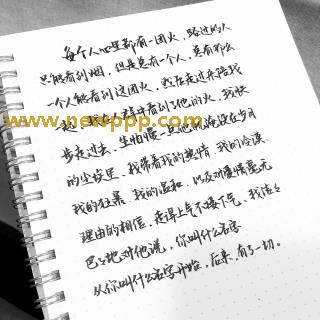 每个人心里都有一团火，路过的人
只能看到烟，但是总有一个人，总有那么
一个人能看到这团火，然后走过来陪我
他的火，我快
www.newppp.com
步走过去，生怕慢一点他就淹没在岁月
的尘埃里。我带着我的热情，我的冷漠
我的狂暴，我的温和，以及对爱情毫无
理由的相信，走得上气不接下气。我结结
巴巴地对他说，你叫什么名字
从你叫什么名字开始，后来，有了一切。